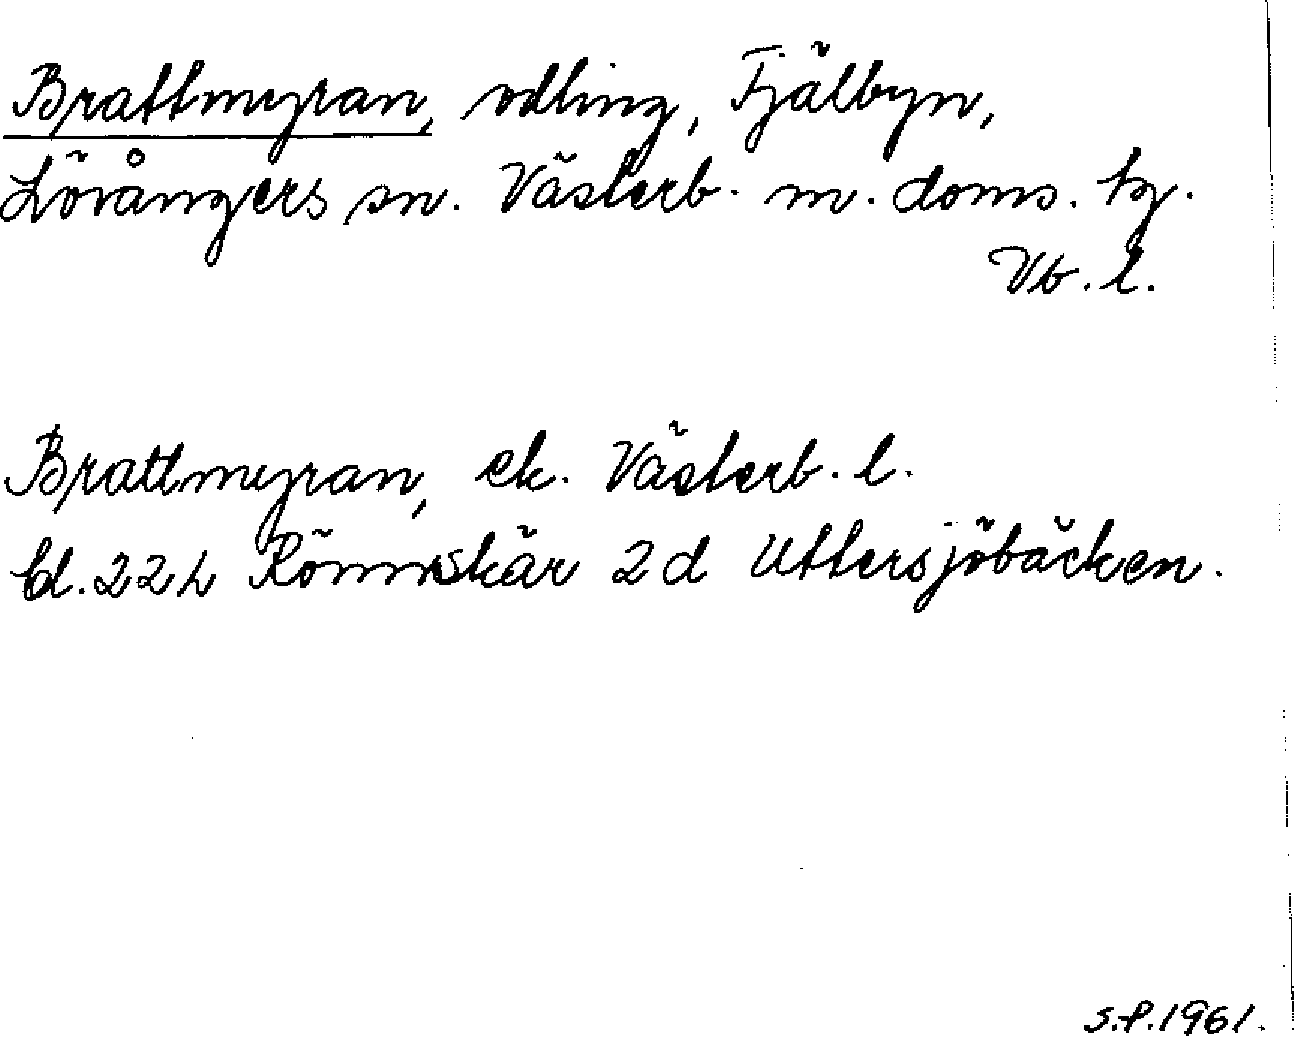 Brattmyran, odling, Fjälbyn,
Lövångers sn. Västerb. m. doms. tg.
Vb. l.
Brattmyran, ek. Västerb. l.
bl. 22L Rönnskär 2d Uttersjöbäcken.
S.P. 1961.